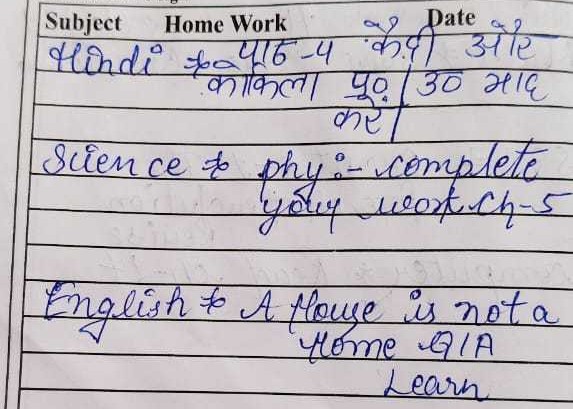 Subject Home Work Date
Hindi पाठ-4 कैदी और
कोकिला प्र०/उ० याद
करें
Science phy:- complete
your work ch-5
English A House is not a
Home Q/A
Learn